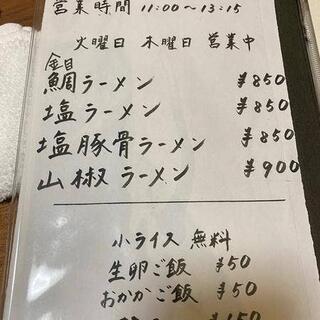 営業時間 11:00～13:15
火曜日 木曜日 営業中
金目
鯛ラーメン ¥850
塩ラーメン ¥850
塩豚骨ラーメン ¥850
山椒ラーメン ¥900
小ライス 無料
生卵ご飯 ¥50
おかかご飯 ¥50